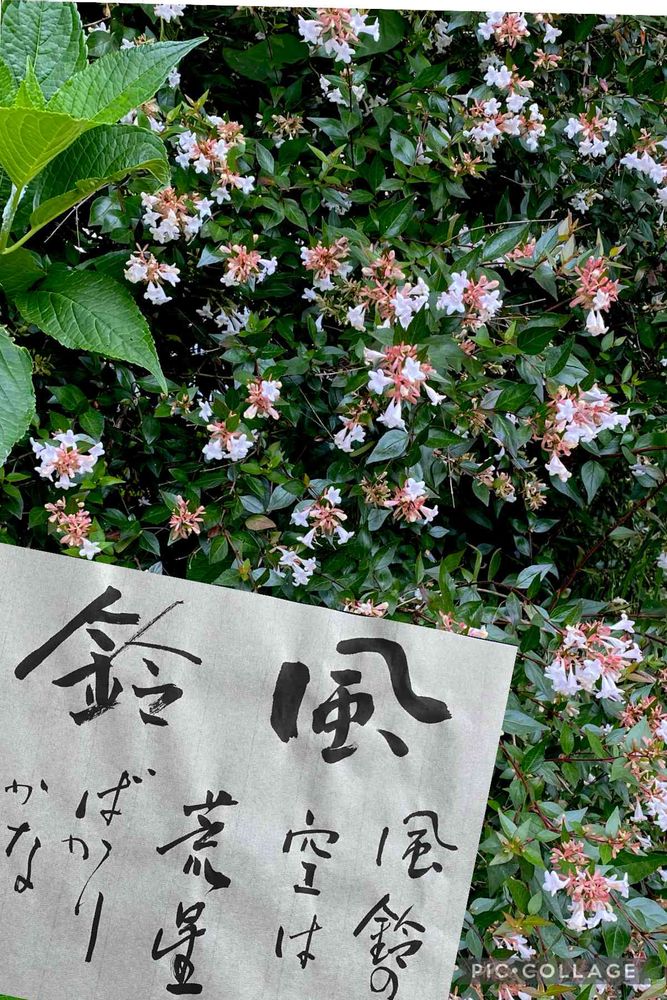 風鈴
風鈴の
空は
荒星
ばかり
かな
PIC•COLLAGE